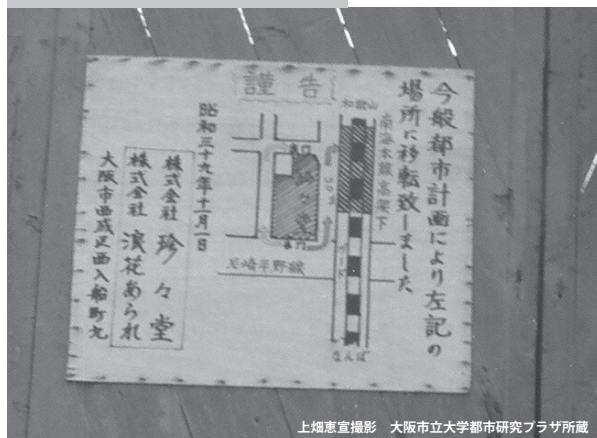 謹告
今般都市計画により左記の
場所に移転致しました
和歌山
南海本線高架下
ガード
なんば
尼崎平野線
昭和三十九年十一月一日
株式会社 珍々堂
株式会社 浪花あられ
大阪市西成区西入船町九
上畑恵宣撮影 大阪市立大学都市研究プラザ所蔵